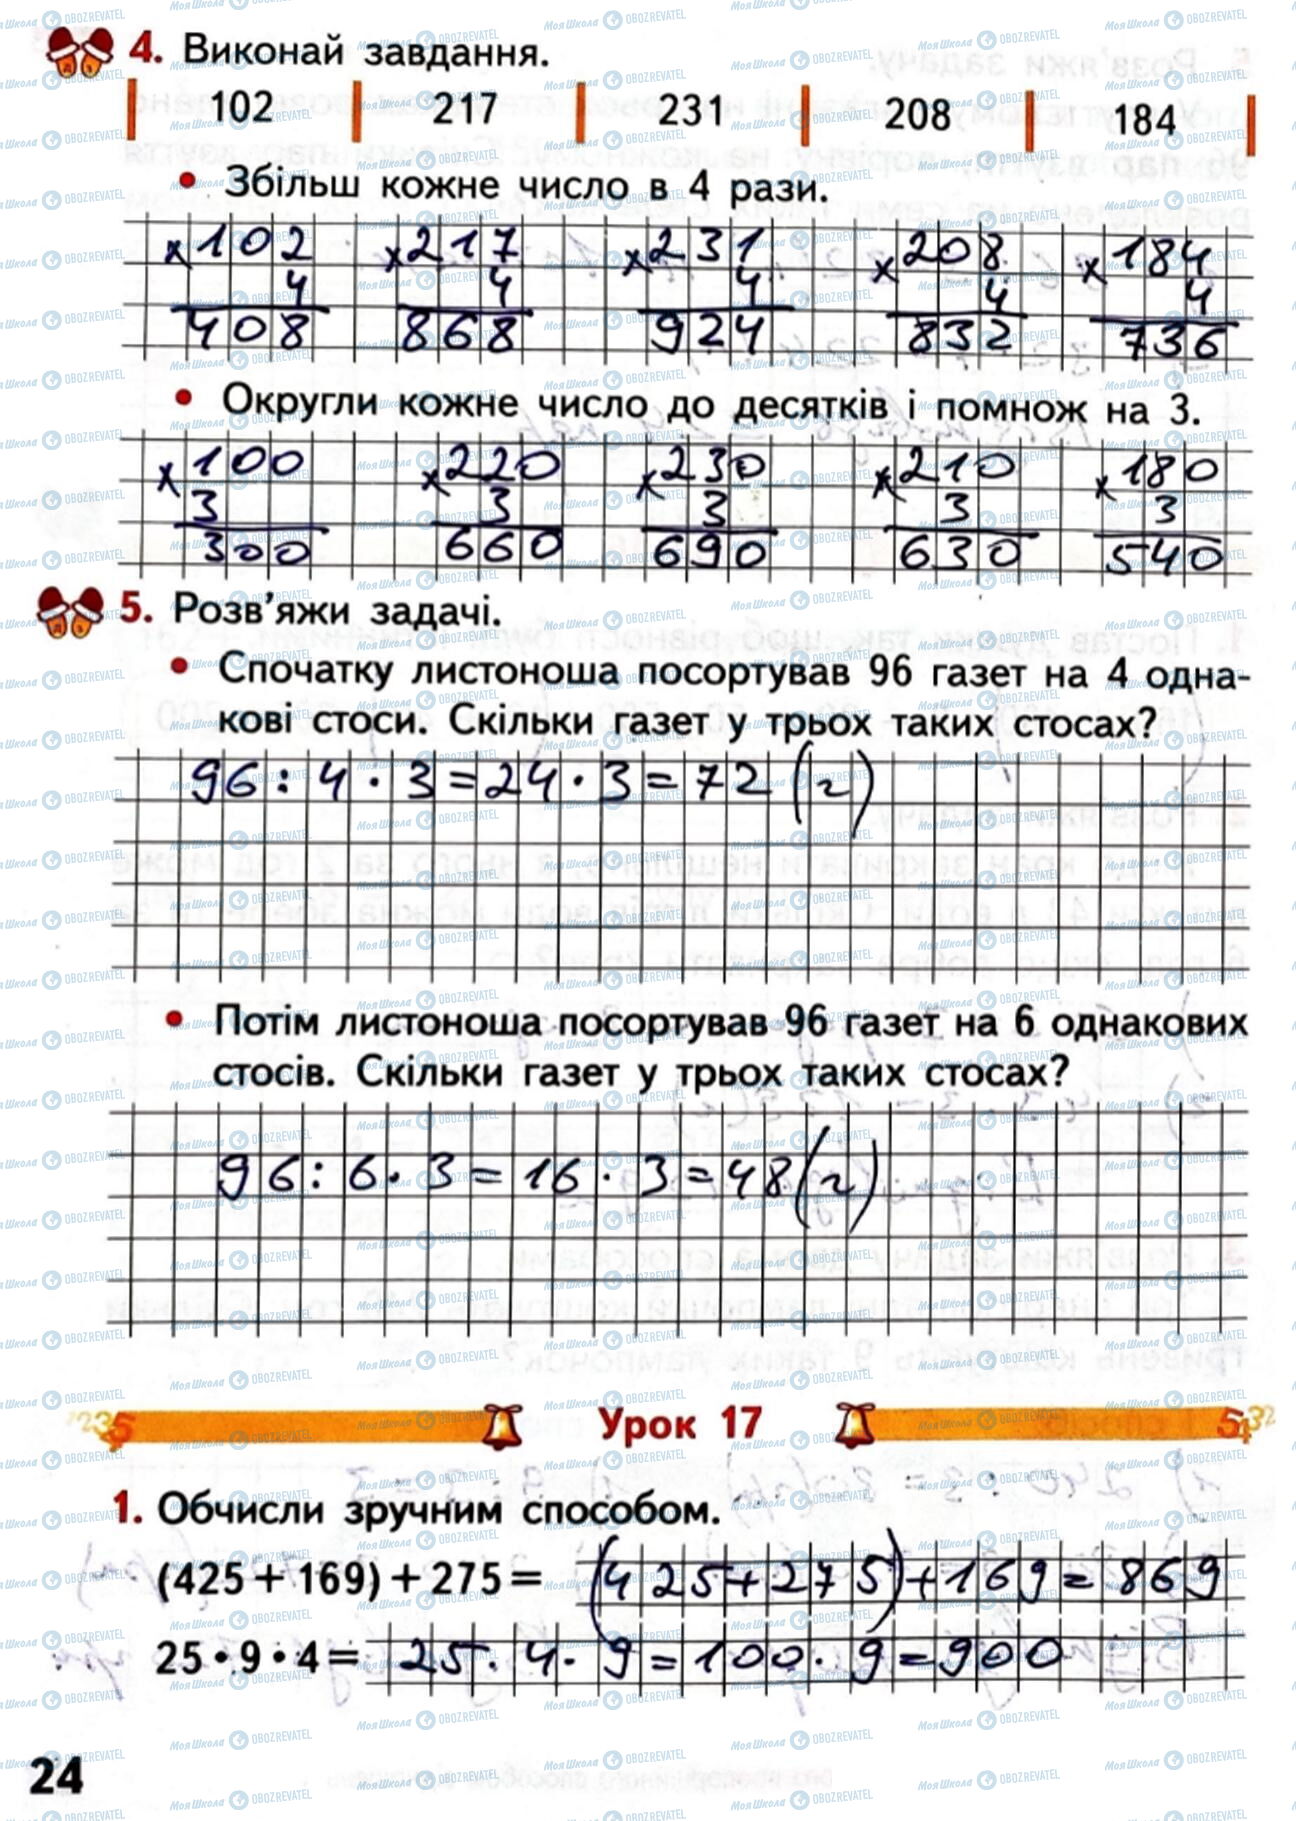 4. Виконай завдання.
102 217 231 208 184
• Збільш кожне число в 4 рази.
×102 ×217 ×231 ×208 ×184
4 4 4 4 4
408 868 924 832 736
• Округли кожне число до десятків і помнож на 3.
×100 ×220 ×230 ×210 ×180
3 3 3 3 3
300 660 690 630 540
5. Розв’яжи задачі.
• Спочатку листоноша посортував 96 газет на 4 одна-
кові стоси. Скільки газет у трьох таких стосах?
96 : 4 · 3 = 24 · 3 = 72 (г)
• Потім листоноша посортував 96 газет на 6 однакових
стосів. Скільки газет у трьох таких стосах?
96 : 6 · 3 = 16 · 3 = 48 (г)
Урок 17
1. Обчисли зручним способом.
(425 + 169) + 275 = (425 + 275) + 169 = 869
25 • 9 • 4 = 25 · 4 · 9 = 100 · 9 = 900
24
МояШкола OBOZREVATEL